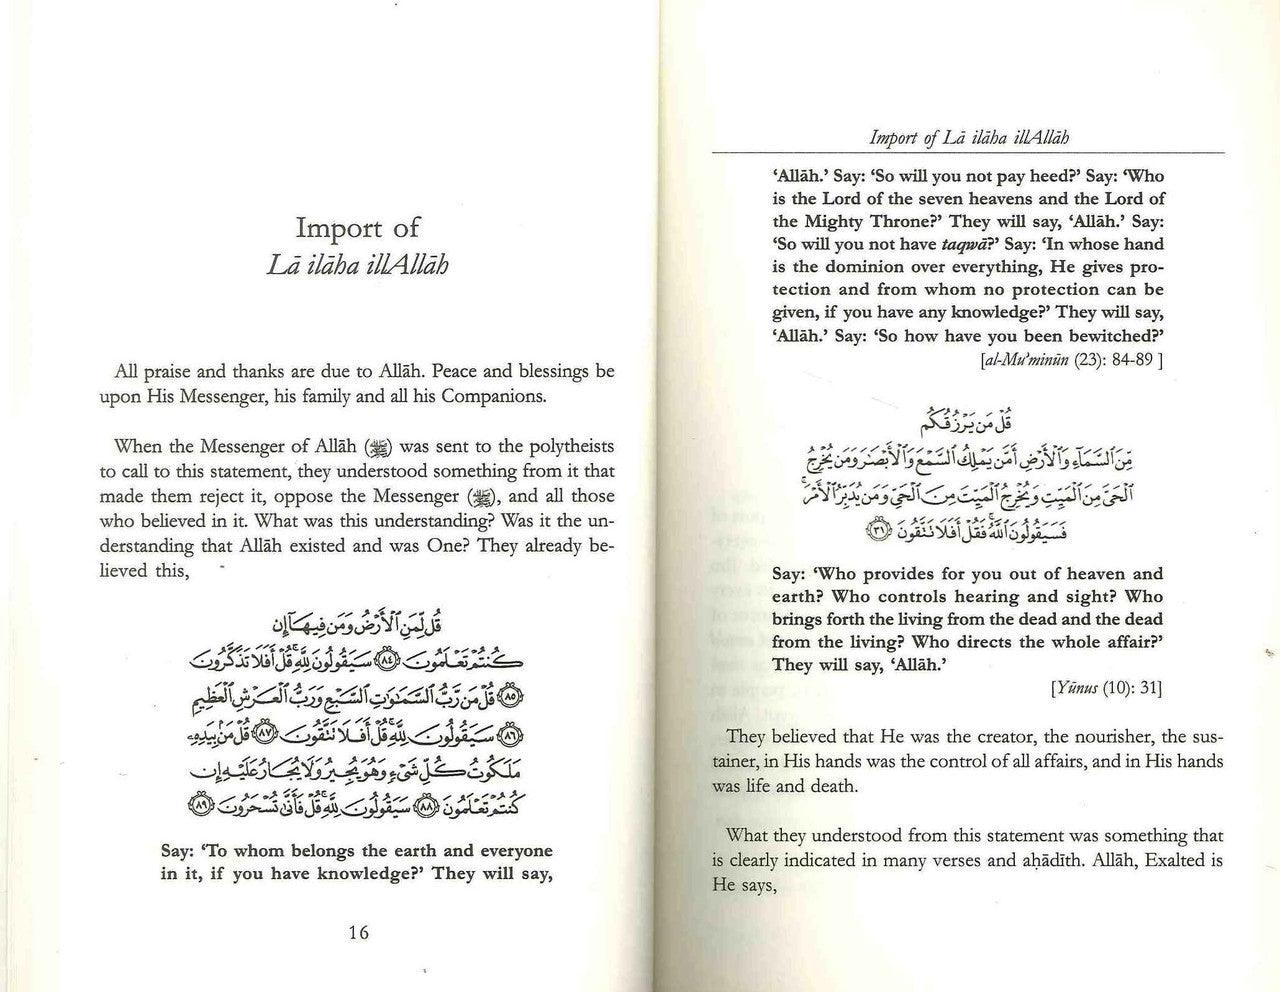 Import of
Lā ilāha illAllāh
All praise and thanks are due to Allāh. Peace and blessings be
upon His Messenger, his family and all his Companions.
When the Messenger of Allāh (ﷺ) was sent to the polytheists
to call to this statement, they understood something from it that
made them reject it, oppose the Messenger (ﷺ), and all those
who believed in it. What was this understanding? Was it the un-
derstanding that Allāh existed and was One? They already be-
lieved this,
قُل لِّمَنِ ٱلْأَرْضُ وَمَن فِيهَآ إِن
كُنتُمْ تَعْلَمُونَ ﴿٨٤﴾ سَيَقُولُونَ لِلَّهِ ۚ قُلْ أَفَلَا تَذَكَّرُونَ
﴿٨٥﴾ قُلْ مَن رَّبُّ ٱلسَّمَـٰوَٰتِ ٱلسَّبْعِ وَرَبُّ ٱلْعَرْشِ ٱلْعَظِيمِ
﴿٨٦﴾ سَيَقُولُونَ لِلَّهِ ۚ قُلْ أَفَلَا تَتَّقُونَ ﴿٨٧﴾ قُلْ مَنۢ بِيَدِهِۦ
مَلَكُوتُ كُلِّ شَىْءٍ وَهُوَ يُجِيرُ وَلَا يُجَارُ عَلَيْهِ إِن
كُنتُمْ تَعْلَمُونَ ﴿٨٨﴾ سَيَقُولُونَ لِلَّهِ ۚ قُلْ فَأَنَّىٰ تُسْحَرُونَ ﴿٨٩﴾
Say: ‘To whom belongs the earth and everyone
in it, if you have knowledge?’ They will say,
16
Import of Lā ilāha illAllāh
‘Allāh.’ Say: ‘So will you not pay heed?’ Say: ‘Who
is the Lord of the seven heavens and the Lord of
the Mighty Throne?’ They will say, ‘Allāh.’ Say:
‘So will you not have taqwā?’ Say: ‘In whose hand
is the dominion over everything, He gives pro-
tection and from whom no protection can be
given, if you have any knowledge?’ They will say,
‘Allāh.’ Say: ‘So how have you been bewitched?’
[al-Mu’minūn (23): 84-89 ]
قُلْ مَن يَرْزُقُكُم
مِّنَ ٱلسَّمَآءِ وَٱلْأَرْضِ أَمَّن يَمْلِكُ ٱلسَّمْعَ وَٱلْأَبْصَـٰرَ وَمَن يُخْرِجُ
ٱلْحَىَّ مِنَ ٱلْمَيِّتِ وَيُخْرِجُ ٱلْمَيِّتَ مِنَ ٱلْحَىِّ وَمَن يُدَبِّرُ ٱلْأَمْرَ ۚ
فَسَيَقُولُونَ ٱللَّهُ ۚ فَقُلْ أَفَلَا تَتَّقُونَ ﴿٣١﴾
Say: ‘Who provides for you out of heaven and
earth? Who controls hearing and sight? Who
brings forth the living from the dead and the dead
from the living? Who directs the whole affair?’
They will say, ‘Allāh.’
[Yūnus (10): 31]
They believed that He was the creator, the nourisher, the sus-
tainer, in His hands was the control of all affairs, and in His hands
was life and death.
What they understood from this statement was something that
is clearly indicated in many verses and aḥādīth. Allāh, Exalted is
He says,